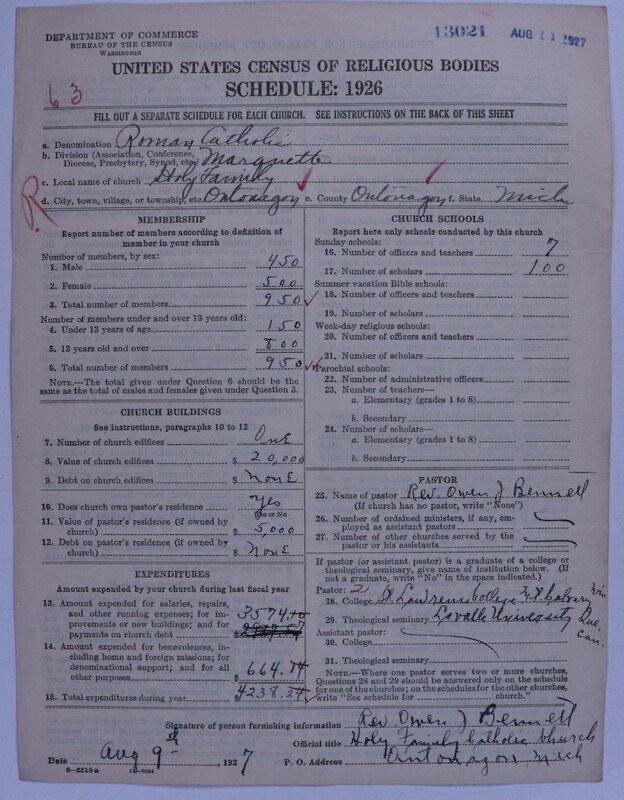 DEPARTMENT OF COMMERCE
BUREAU OF THE CENSUS
WASHINGTON
13021 AUG 11 1927
UNITED STATES CENSUS OF RELIGIOUS BODIES
SCHEDULE: 1926
63
FILL OUT A SEPARATE SCHEDULE FOR EACH CHURCH. SEE INSTRUCTIONS ON THE BACK OF THIS SHEET
a. Denomination Roman Catholic
b. Division (Association, Conference, Diocese, Presbytery, Synod, etc.) Marquette
c. Local name of church Holy Family
R
d. City, town, village, or township, etc. Ontonagon e. County Ontonagon f. State Mich
MEMBERSHIP
Report number of members according to definition of
member in your church
Number of members, by sex:
1. Male 450
2. Female 500
3. Total number of members 950
Number of members under and over 13 years old:
4. Under 13 years of age 150
5. 13 years old and over 800
6. Total number of members 950
NOTE.—The total given under Question 6 should be
the same as the total of males and females given under Question 3.
CHURCH BUILDINGS
See instructions, paragraphs 10 to 12
7. Number of church edifices OnE
8. Value of church edifices $ 20,000
9. Debt on church edifices $ NonE
10. Does church own pastor's residence Yes
(Yes or No)
11. Value of pastor's residence (if owned by
church) $ 5,000
12. Debt on pastor's residence (if owned by
church) $ NonE
EXPENDITURES
Amount expended by your church during last fiscal year
13. Amount expended for salaries, repairs,
and other running expenses; for im-
provements or new buildings; and for
payments on church debt $ 3574.40
14. Amount expended for benevolences,
including home and foreign missions; for
denominational support; and for all
other purposes $ 664.84
15. Total expenditures during year $ 4238.24
CHURCH SCHOOLS
Report here only schools conducted by this church
Sunday schools:
16. Number of officers and teachers 7
17. Number of scholars 100
Summer vacation Bible schools:
18. Number of officers and teachers
19. Number of scholars
Week-day religious schools:
20. Number of officers and teachers
21. Number of scholars
Parochial schools:
22. Number of administrative officers
23. Number of teachers—
a. Elementary (grades 1 to 8)
b. Secondary
24. Number of scholars—
a. Elementary (grades 1 to 8)
b. Secondary
PASTOR
25. Name of pastor Rev. Owen J Bennett
(If church has no pastor, write "None")
26. Number of ordained ministers, if any, em-
ployed as assistant pastors
27. Number of other churches served by the
pastor or his assistants
If pastor (or assistant pastor) is a graduate of a college or
theological seminary, give name of institution below. (If
not a graduate, write "No" in the space indicated.)
Pastor: 2
28. College St Lawrence College Mt. Calvary Wis
29. Theological seminary Lavalle University Que. Can.
Assistant pastor:
30. College
31. Theological seminary
NOTE.—Where one pastor serves two or more churches,
Questions 28 and 29 should be answered only on the schedule
for one of the churches; on the schedules for the other churches,
write "See schedule for church."
Signature of person furnishing information Rev. Owen J Bennett
Official title Holy Family Catholic Church
Date Aug 9th 1927 P. O. Address Ontonagon Mich